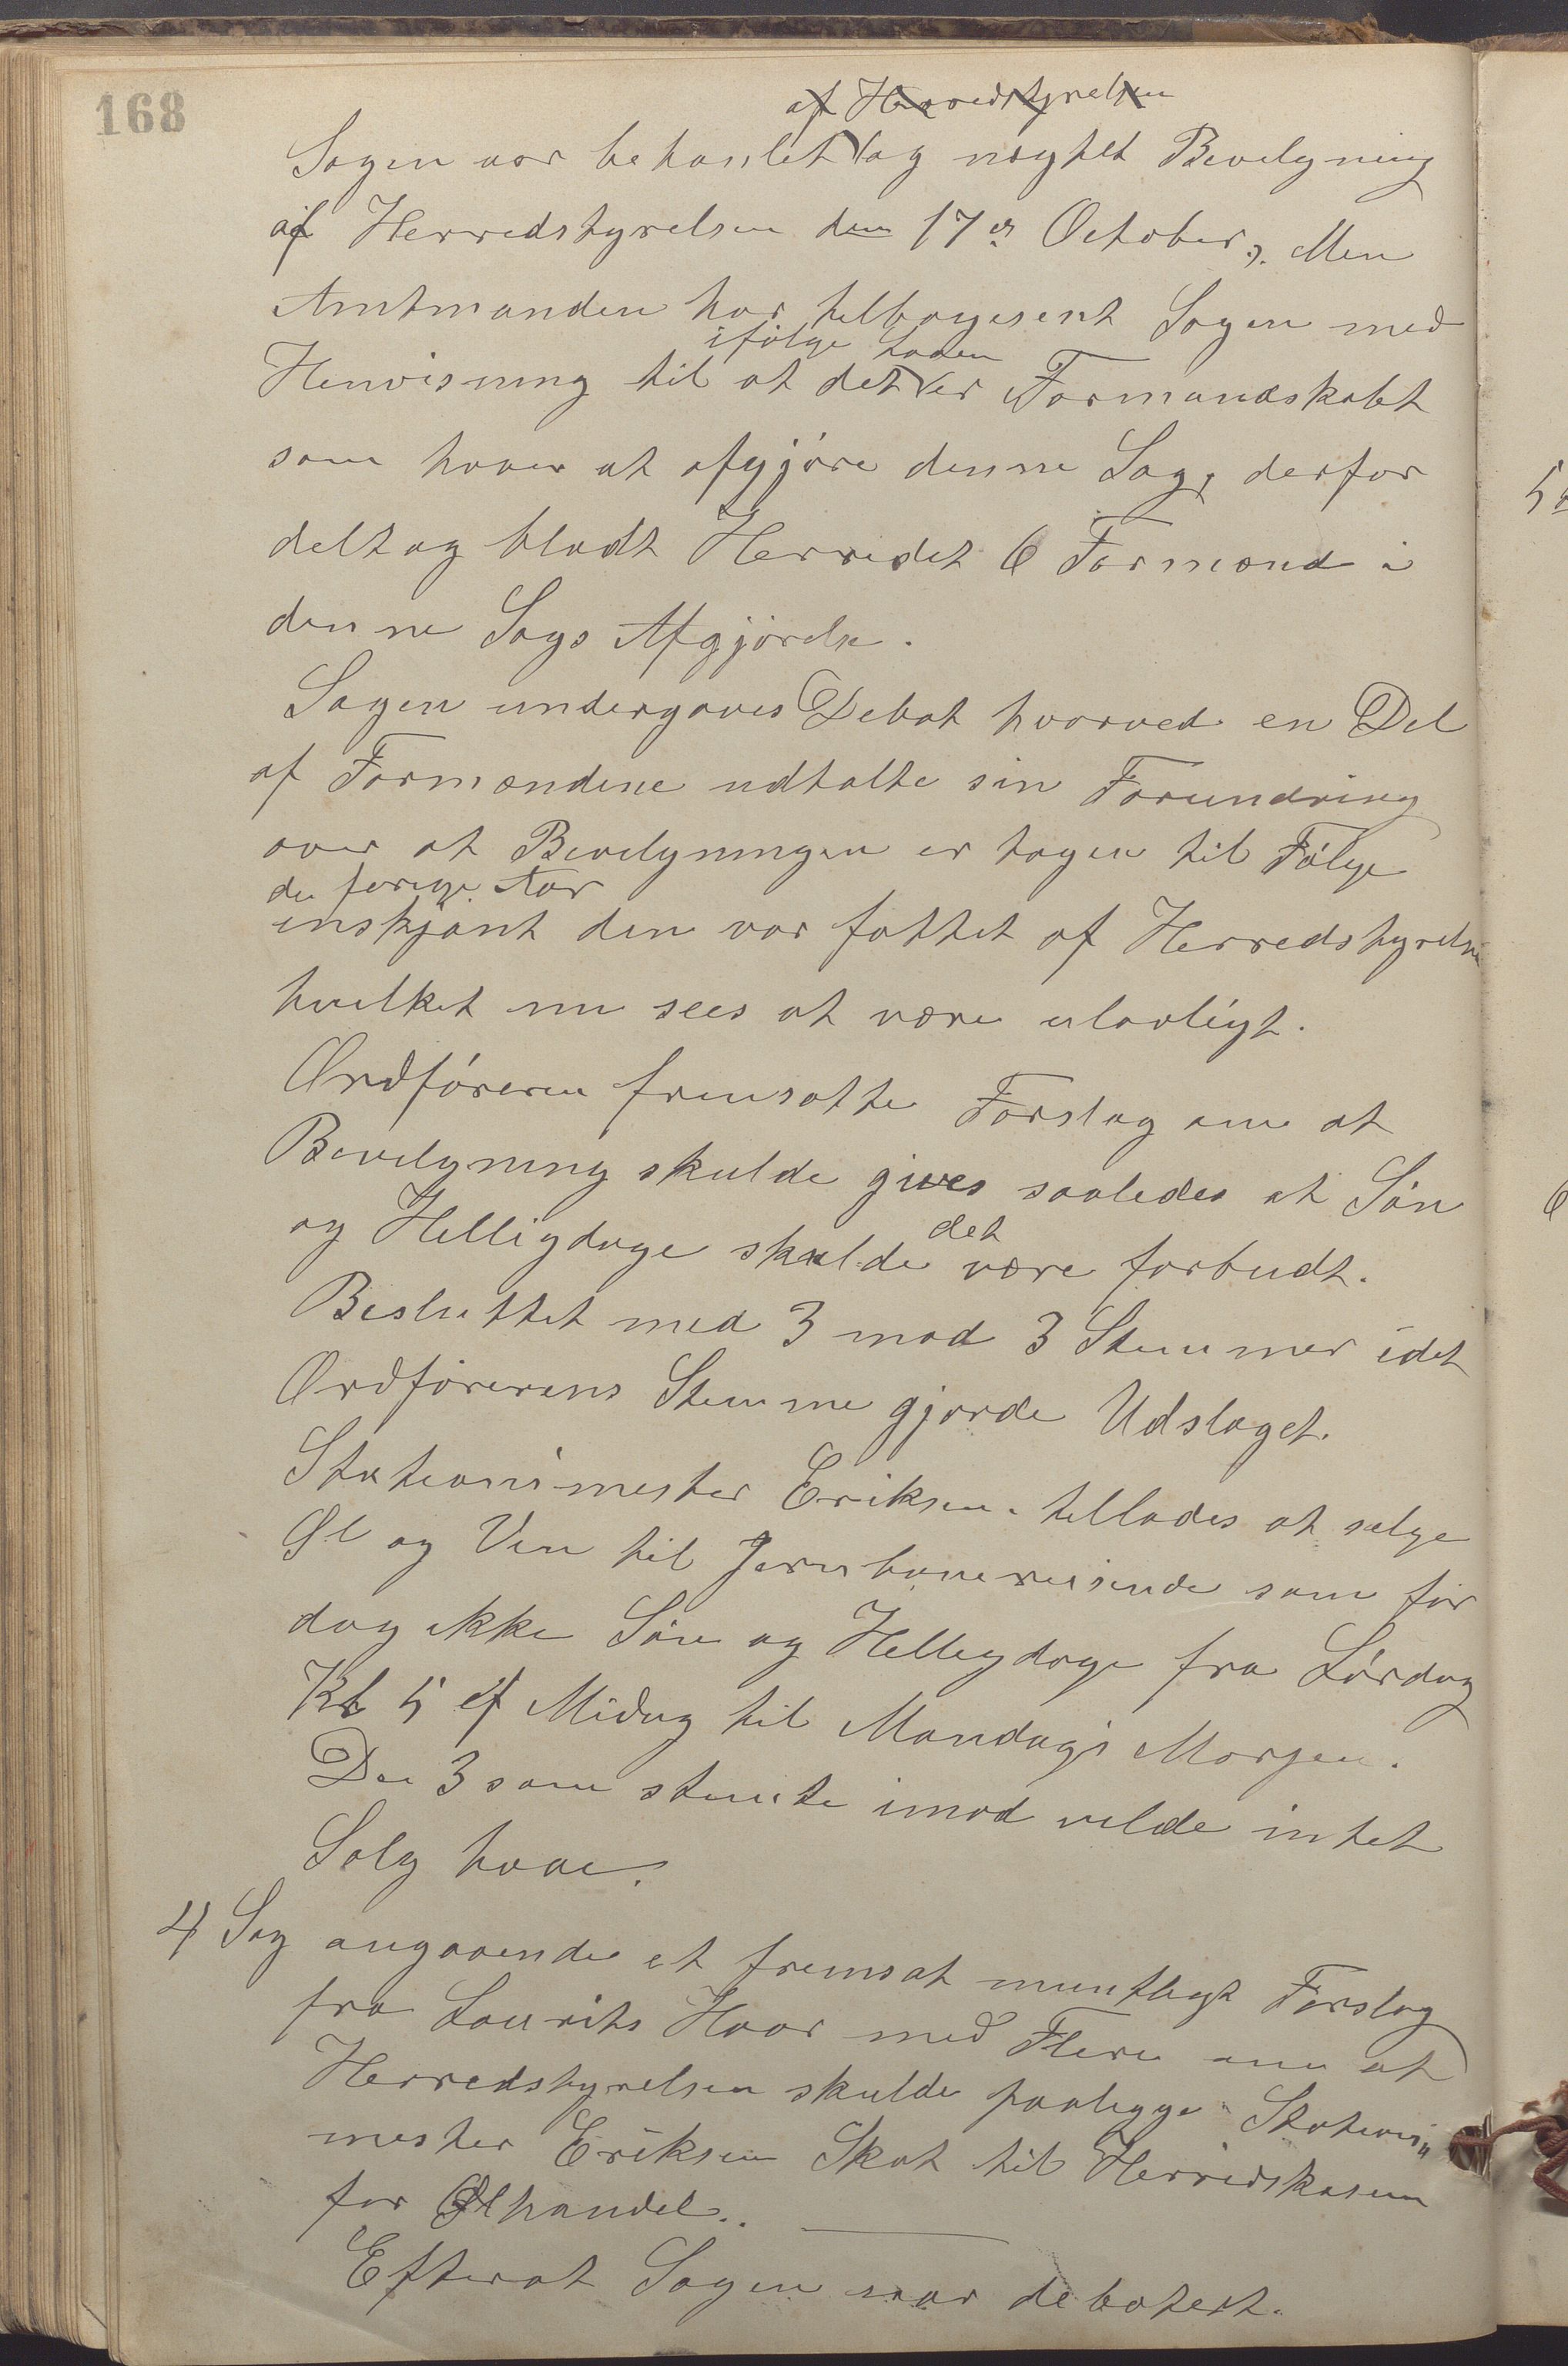 168
af Herredstyrelsen
Sagen var behanlet og negtet Bevelgning
af Herredstyrelsen den 17de October. Men
Amtmanden har telbagesent Sagen med
ifølge
Henvisning til at det er Formandskabet
som haver at afgjøre denne Sag, derfor
deltog blodt Herredet 6 Formænd i
denne Sags Afgjørelse.
Sagen undergaves Debat hvorved en Del
af Formændene udtalte sin Forundring
over at Bevelgningen er tagen til Følge
de forrige Aar
enskjønt den var fattet af Herredstyrelsen
hvilket nu sees at være ulovligt.
Ordføreren fremsatte Forslag om at
Bevelgning skulde gives saaledes at Søn
det
og Helligdage skulde være forbudt.
Besluttet med 3 mod 3 Stemmer idet
Ordførerens Stemme gjorde Udslaget.
Stationsmester Eriksen tellades at sælge
Øl og Vin til Jernbanereisende som før
dog ikke Søn og Helligdage fra Lørdag
Kl 5 ef Midag til Mandags Morgen.
De 3 som stemte imod vilde intet
Salg have.
4 Sag angaaende et fremsat muntligt Forslag
fra Laurits Haar med Flere om at
Herredstyrelsen skulde paalegge Stations"
mester Eriksen Skat til Herredskassen
for Ølhandel..
Efterat Sagen var debatert.